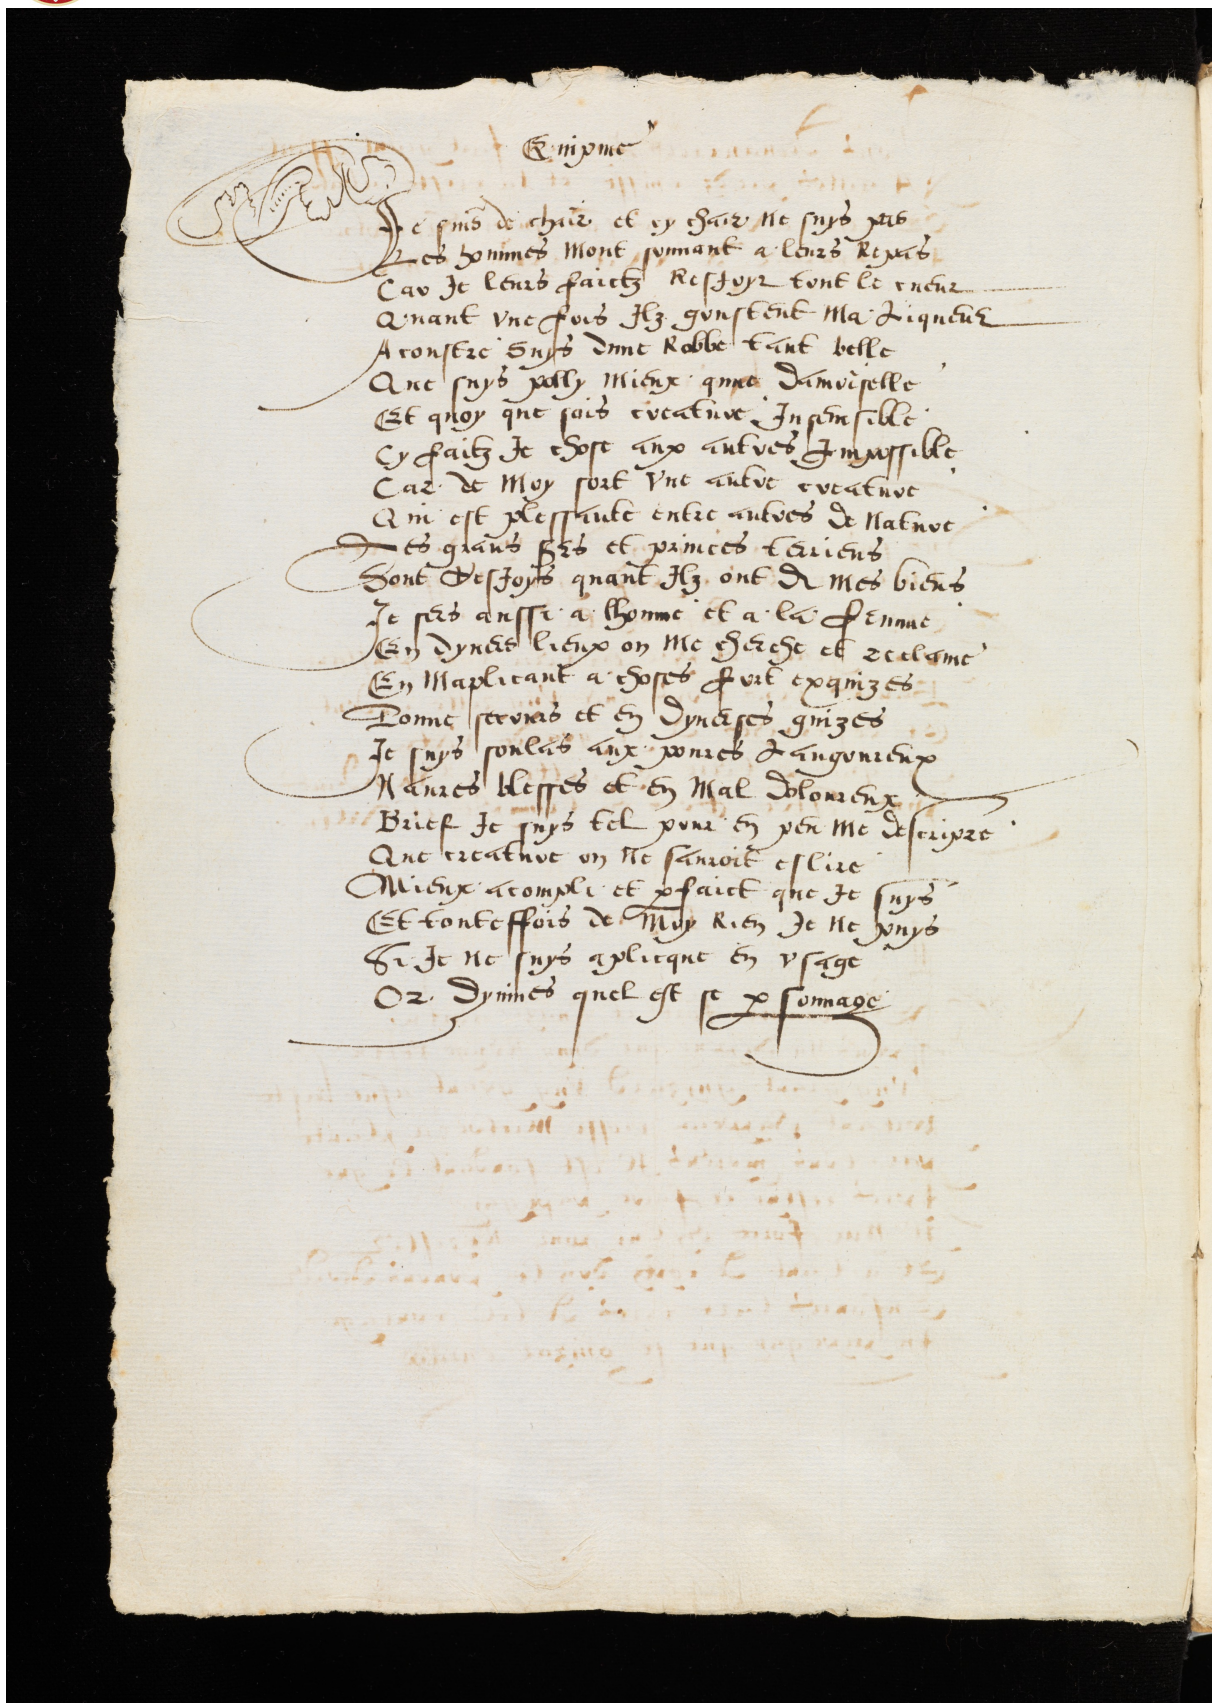 Enigme
Je suis de chair et cy chair ne suys pas
Les hommes mont souuant a leurs repas
Car Je leurs faictz resJoyr tout le cueur
Quant vne fois Jlz goustent ma liqueur
Acoustre suys dune robbe tant belle
Que suys polly mieux qune damoiselle
Et quoy que sois creature Jnsensible
Cy faitz Je chose aux autres Jmpossible
Car de moy sort vne autre creature
Qui est plessante entre autres de nature
Les grans srs et princes terriens
Sont resJoys quant Jlz ont de mes biens
Je sers aussi a lhomme et a la femme
En dyuers lieux on me cherche et reclame
En maplicant a choses fort exquizes
Donne secours et en dyuerses guizes
Je suys soulas aux poures langoureux
Naures blesses et en mal doloureux
Brief Je suys tel pour en peu me descripre
Que creature on ne sauroit eslire
Mieux acompli et pfaict que Je suys
Et touteffois de moy rien Je ne puys
Si Je ne suys aplicque en vsage
Or dyuines quel est se psonnage